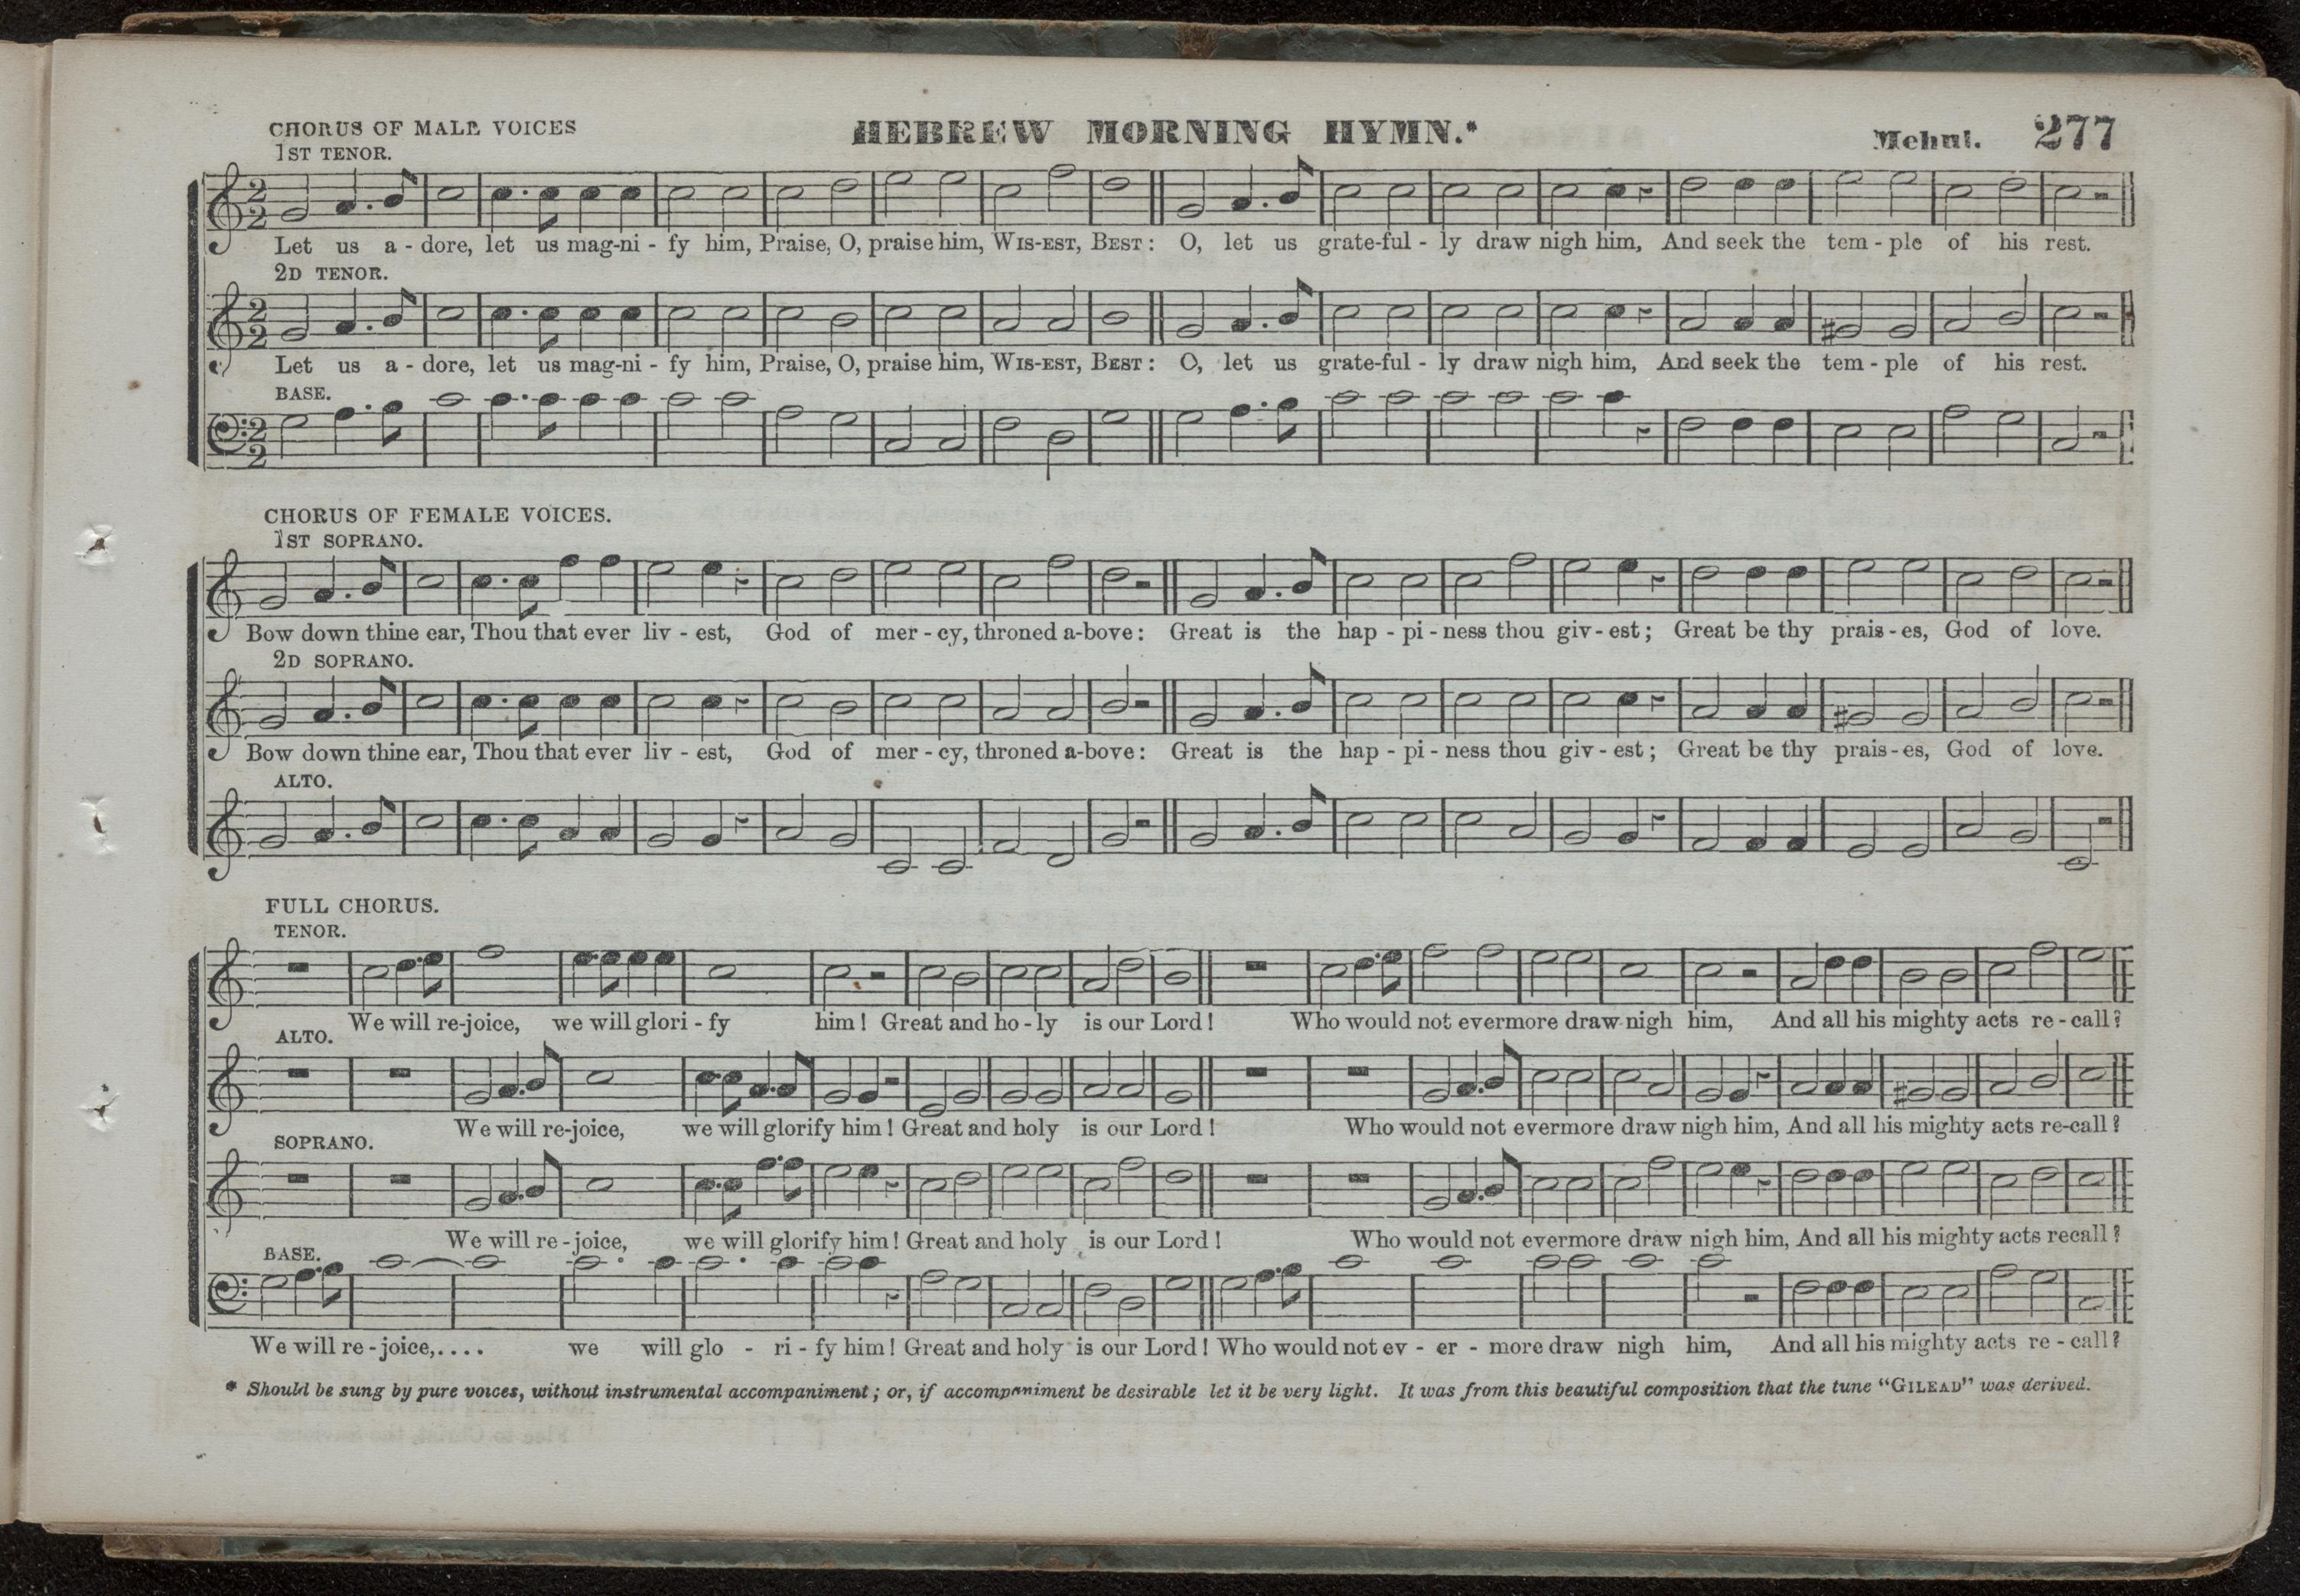 CHORUS OF MALE VOICES HEBREW MORNING HYMN.* Mehul. 277
1ST TENOR.
2
2
Let us a - dore, let us mag-ni - fy him, Praise, O, praise him, WIS-EST, BEST: O, let us grate-ful - ly draw nigh him, And seek the tem - ple of his rest.
2D TENOR.
2
2
Let us a - dore, let us mag-ni - fy him, Praise, O, praise him, WIS-EST, BEST: O, let us grate-ful - ly draw nigh him, And seek the tem - ple of his rest.
BASE.
2
2
CHORUS OF FEMALE VOICES.
1ST SOPRANO.
Bow down thine ear, Thou that ever liv - est, God of mer - cy, throned a-bove: Great is the hap - pi - ness thou giv - est; Great be thy prais - es, God of love.
2D SOPRANO.
Bow down thine ear, Thou that ever liv - est, God of mer - cy, throned a-bove: Great is the hap - pi - ness thou giv - est; Great be thy prais - es, God of love.
ALTO.
FULL CHORUS.
TENOR.
We will re-joice, we will glori - fy him! Great and ho - ly is our Lord! Who would not evermore draw nigh him, And all his mighty acts re - call?
ALTO.
We will re-joice, we will glorify him! Great and holy is our Lord! Who would not evermore draw nigh him, And all his mighty acts re-call?
SOPRANO.
We will re - joice, we will glorify him! Great and holy is our Lord! Who would not evermore draw nigh him, And all his mighty acts recall?
BASE.
We will re - joice,.... we will glo - ri - fy him! Great and holy is our Lord! Who would not ev - er - more draw nigh him, And all his mighty acts re - call?
* Should be sung by pure voices, without instrumental accompaniment; or, if accompaniment be desirable let it be very light. It was from this beautiful composition that the tune "GILEAD" was derived.